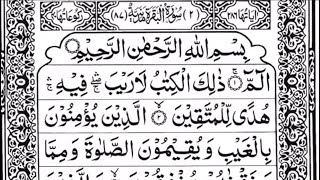 اٰیَاتُهَا ٢٨٦ (٢) سُوْرَةُ الْبَقَرَةِ مَدَنِیَّةٌ (٨٧) رُكُوْعَاتُهَا
بِسْمِ اللّٰهِ الرَّحْمٰنِ الرَّحِیْمِ
الٓمّٓ ۚ﴿١﴾ ذٰلِكَ الْكِتٰبُ لَا رَیْبَ ۛۖۚ فِیْهِ ۛۚ
هُدًی لِّلْمُتَّقِیْنَ ﴿٢﴾ الَّذِیْنَ یُؤْمِنُوْنَ
بِالْغَیْبِ وَ یُقِیْمُوْنَ الصَّلٰوةَ وَ مِمَّا